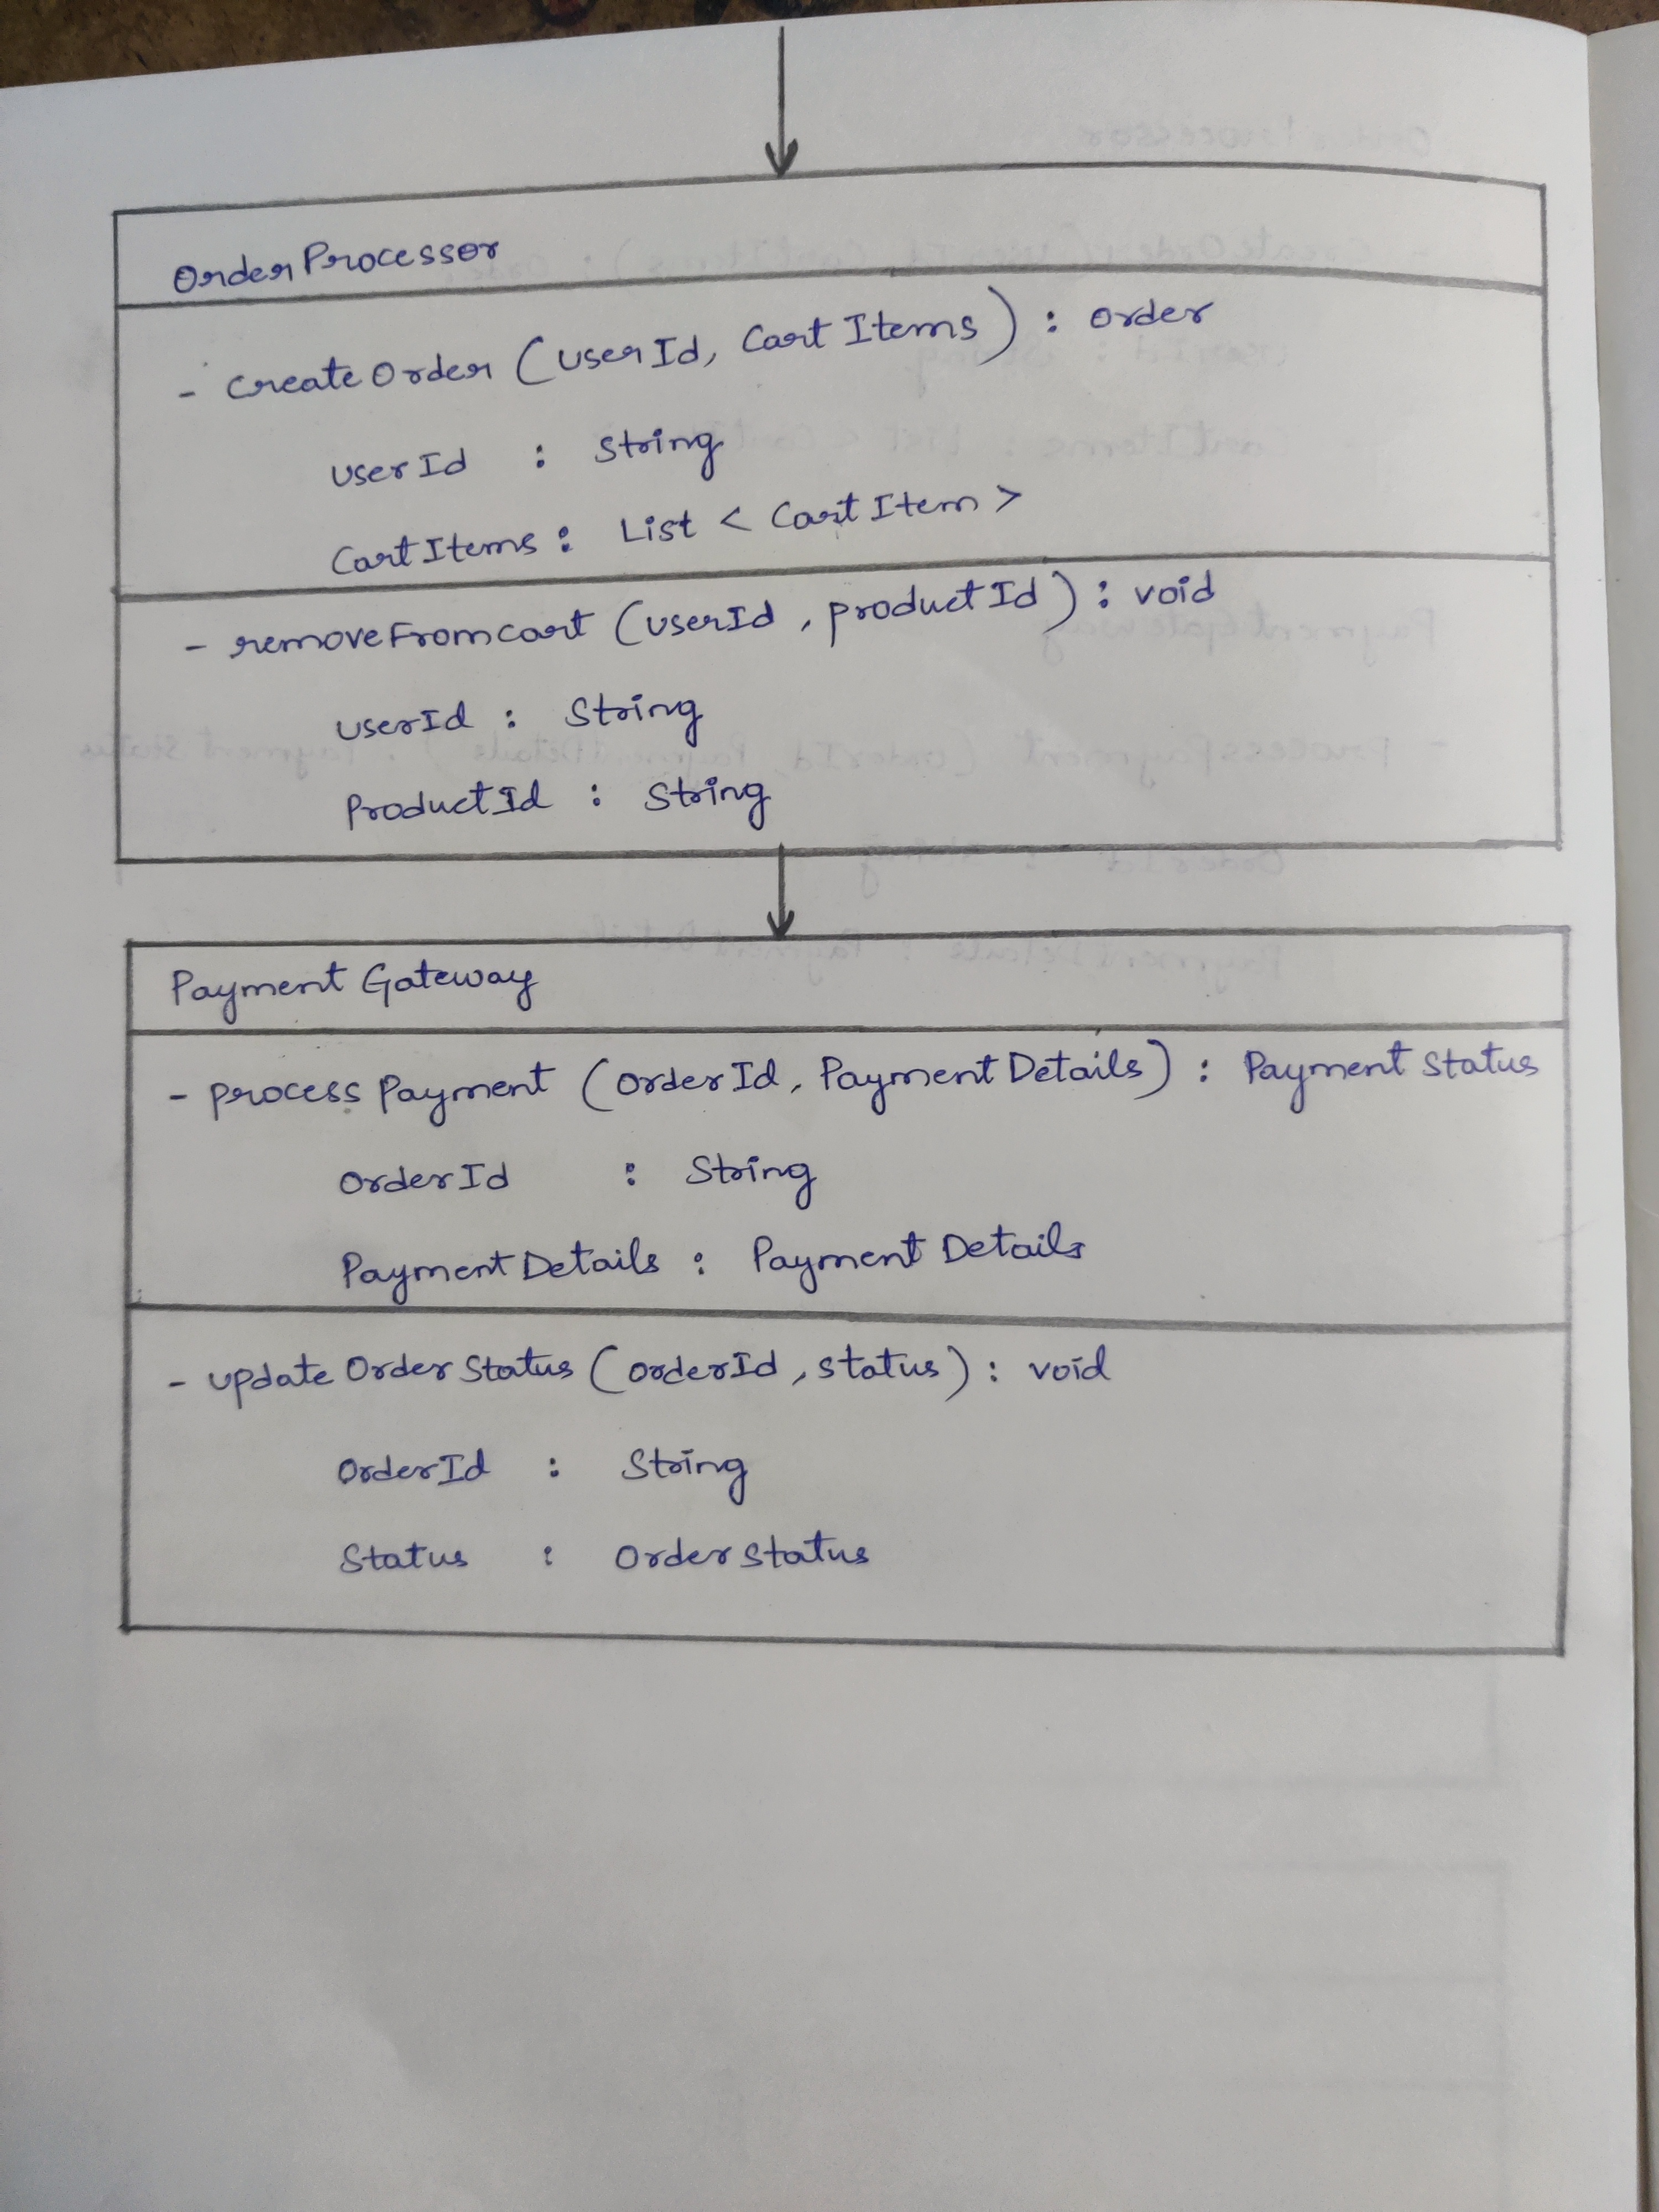 OrderProcessor
- CreateOrder (userId, CartItems) : order
userId : String
CartItems : List < CartItem >
- removeFromcart (userId, productId) : void
userId : String
ProductId : String
Payment Gateway
- process Payment (OrderId, PaymentDetails) : Payment Status
OrderId : String
PaymentDetails : Payment Details
- update Order Status (orderId, status) : void
OrderId : String
Status : Order status